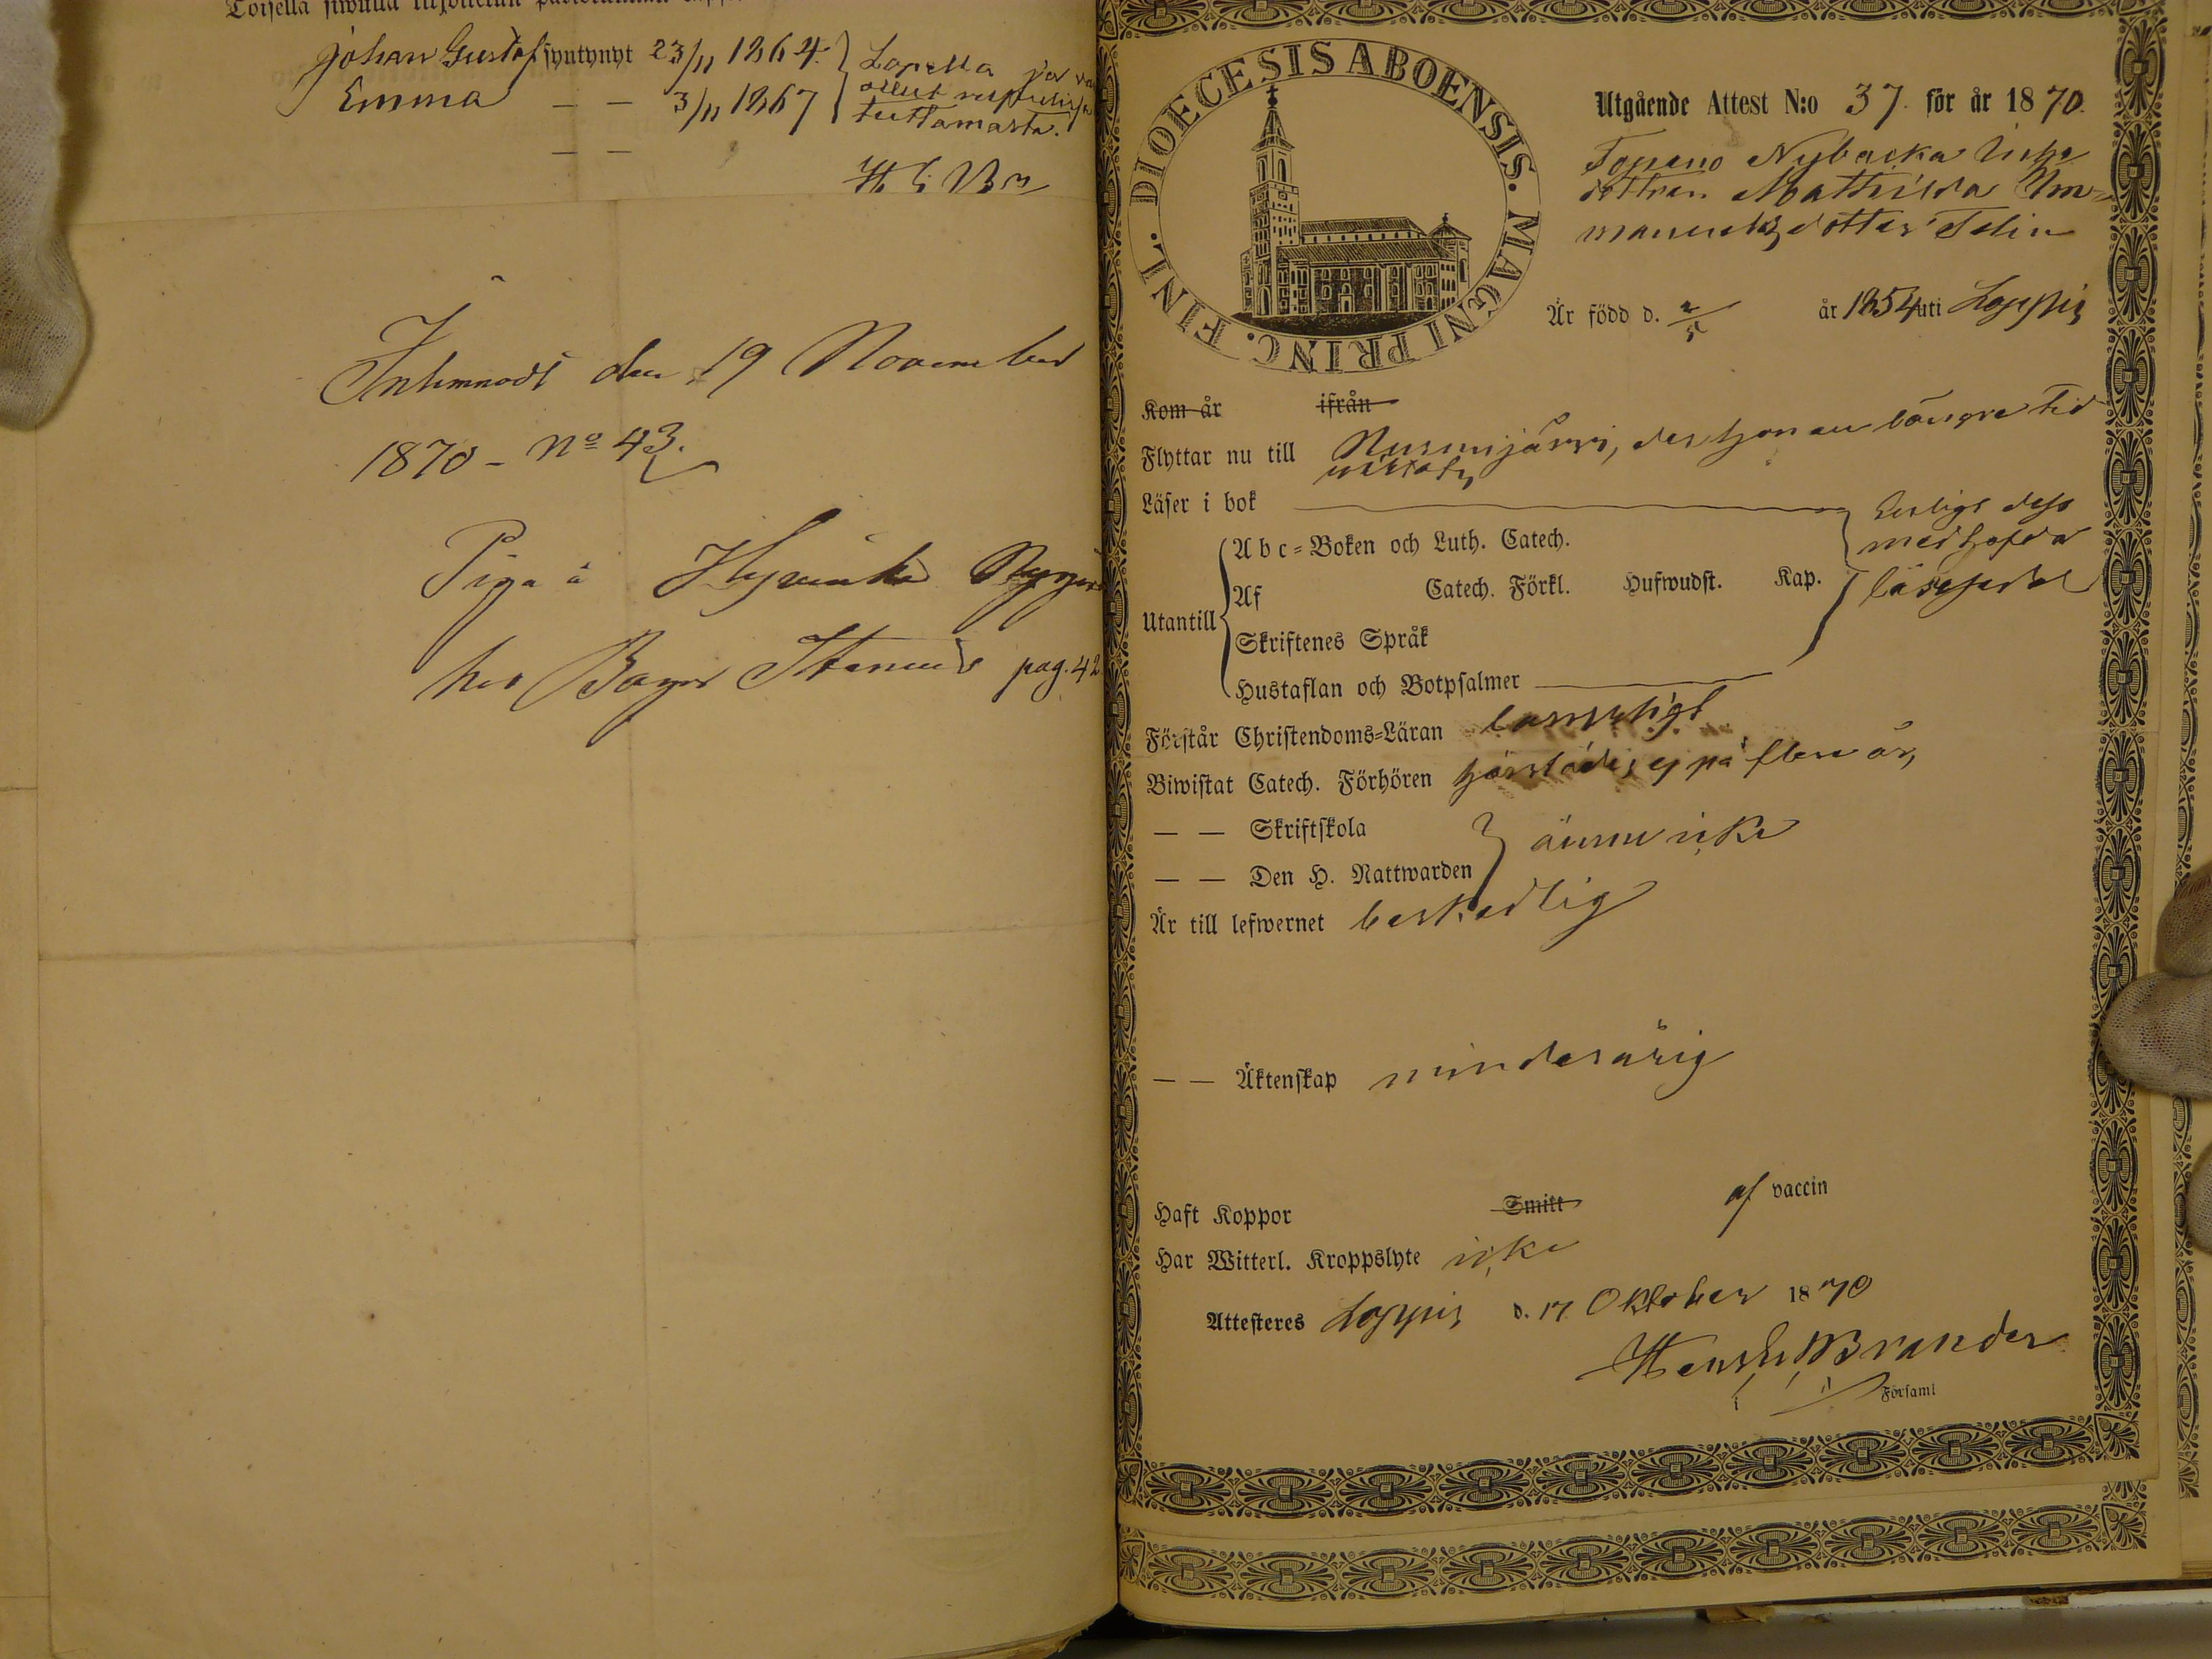 Johan Gustaf syntynyt 23/11 1864.
Emma — — 3/11 1867
— —
Lopella ja
ollut
tuttamasta.
Inlemnadt den 19 November
1870 - No 43.
Piga à Hyvinkä
hos pag. 42
DIOECESIS ABOENSIS. MAGNI PRINC. FINL.
Utgående Attest N:o 37. för år 1870.
Topeno Nybacka
dottren Mathilda Im=
manuelsdotter Telin
Är född d. 2/5 år 1854 uti Loppis
Kom år ifrån
Flyttar nu till Nurmijärvi, der hon en längre tid
vistats
Läser i bok
Utantill
Abc=Boken och Luth. Catech.
Af Catech. Förkl. Hufwudst. Kap.
Skriftenes Språk
Hustaflan och Botpsalmer
Enligt dess
medhafda
läsesedel
Förstår Christendoms=Läran
Biwistat Catech. Förhören härstädes ej på flere år,
— — Skriftskola
— — Den H. Nattwarden
ännu icke
Är till lefwernet beskedlig
— — Äktenskap minderårig
Haft Koppor Smitt af vaccin
Har Witterl. Kroppslyte icke
Attesteres Loppis d. 17 Oktober 1870
Brander
Församl